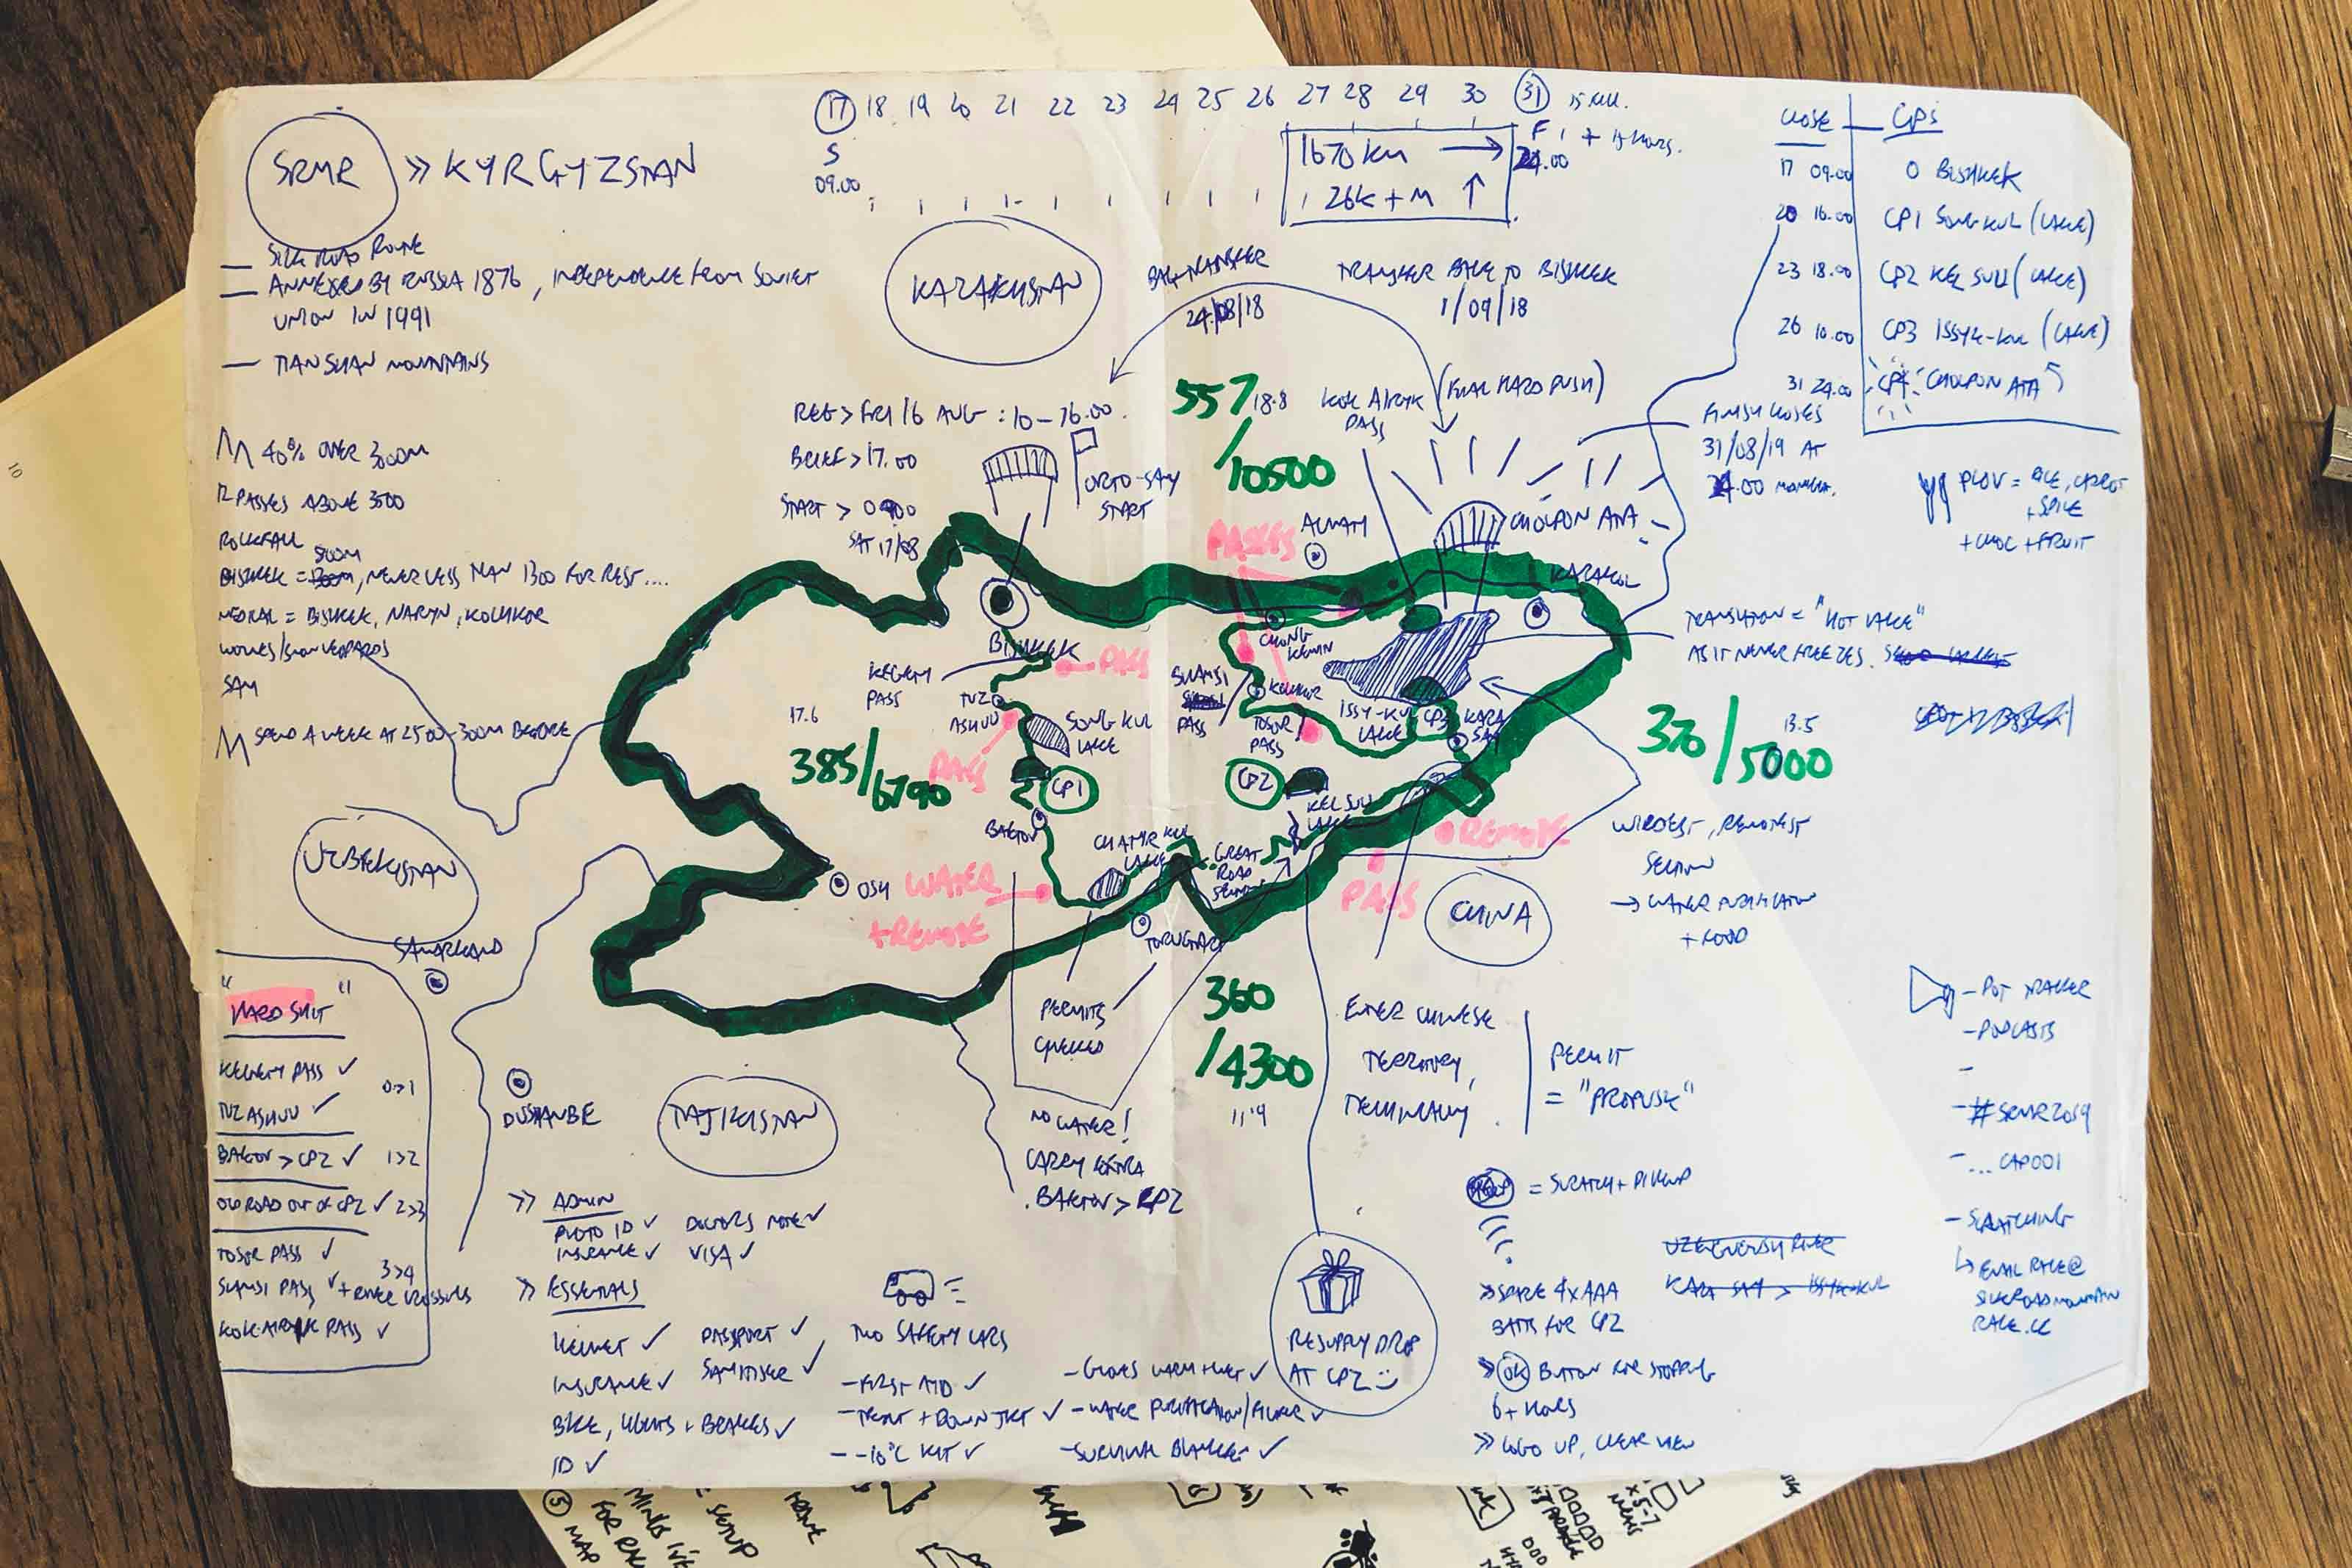 SRMR
>> KYRGYZSTAN
17 18 19 20 21 22 23 24 25 26 27 28 29 30 31
S
09.00
F
24.00
1670 km →
26k + M ↑
— SILK ROAD ROUTE
— ANNEXED BY RUSSIA 1876, INDEPENDENCE FROM SOVIET
UNION IN 1991
— TIAN SHAN MOUNTAINS
40% OVER 3000M
12 PASSES ABOVE 3500
ROCKFALL
500M
BISHKEK = , NEVER LESS THAN 1300 FOR REST....
MEDICAL = BISHKEK, NARYN, KOCHKOR
WOLVES/SNOW LEOPARDS
SPEND A WEEK AT 2500-300M BEFORE
CLOSE CPS
17 09.00 0 BISHKEK
20 16.00 CP1 SONG KUL (LAKE)
23 18.00 CP2 KEL SUU (LAKE)
26 10.00 CP3 ISSYK-KUL (LAKE)
31 24.00 CP4 CHOLPON ATA
FINISH CLOSES
31/08/19 AT
24.00
PLOV = RICE, CARROT
+ SPICE
+ CHOC + FRUIT
TRANSLATION = "HOT LAKE"
AS IT NEVER FREEZES.
KAZAKHSTAN
BAG TRANSFER
24/08/18
TRANSFER BACK TO BISHKEK
1/09/18
REG > FRI 16 AUG : 10-16.00
BRIEF > 17.00
START > 0900
SAT 17/08
ORTO-SAY
START
557
/10500
18.8
KOK AIRYK
PASS
(FINAL HARD PUSH)
CHOLPON ATA
PASSES
ALMATY
KARAKOL
BISHKEK
KEGETY
PASS
PASS
TUZ
ASHUU
SONG KUL
LAKE
PASS
CP1
17.6
385/6790
BAETOV
CHATYR KUL
LAKE
OSH
WATER
+ REMOTE
TORUGART
GREAT
ROAD
CHONG
KEMIN
SHAMSI
PASS
KOCHKOR
TOSOR
PASS
ISSY-KUL
LAKE
CP3
KARA
SAY
CP2
KEL SUU
LAKE
REMOTE
PASS
370/5000
13.5
WIRDEST, REMOTEST
SECTION
→ WATER PURIFICATION
+ FOOD
CHINA
UZBEKISTAN
SAMARKAND
DUSHANBE
TAJIKISTAN
PERMITS
CHECKED
360
/4300
11.9
ENTER CHINESE
TERRITORY,
TECHNICALLY.
PERMIT
= "PROPUSK"
NO WATER!
CARRY EXTRA
BAETOV > CP2
"HARD SHIT"
KEGETY PASS ✓
0>1
TUZ ASHUU ✓
BAETOV > CP2 ✓ 1>2
OLD ROAD OUT OF CP2 ✓ 2>3
TOSOR PASS ✓
3>4
SHAMSI PASS ✓ + RIVER CROSSINGS
KOK AIRYK PASS ✓
>> ADMIN
PHOTO ID ✓ DOCTORS NOTE ✓
INSURANCE ✓ VISA ✓
>> ESSENTIALS
HELMET ✓ PASSPORT ✓
INSURANCE ✓ SANITISER ✓
BIKE, LIGHTS + BRAKES ✓
ID ✓
TWO SAFETY CARS
- FIRST AID ✓
- TENT + DOWN JKT ✓
- -10°C KIT ✓
- GLOVES WARM + WET ✓
- WATER PURIFICATION/FILTER ✓
- SURVIVAL BLANKET ✓
RESUPPLY DROP
AT CP2
= SCRATCH + PICKUP
>> SPARE 4xAAA
BATTS FOR CP2
>> OK BUTTON FOR STOPPING
6+ HOURS
>> LOGO UP, CLEAR VIEW
KARA SAY > ISSYK-KUL
- DOT TRACKER
- PODCASTS
-
- #SRMR2019
- ... CAP001
- SCRATCHING
↳ EMAIL RACE@
SILKROADMOUNTAIN
RACE.CC
10
5
MAP
SETUP